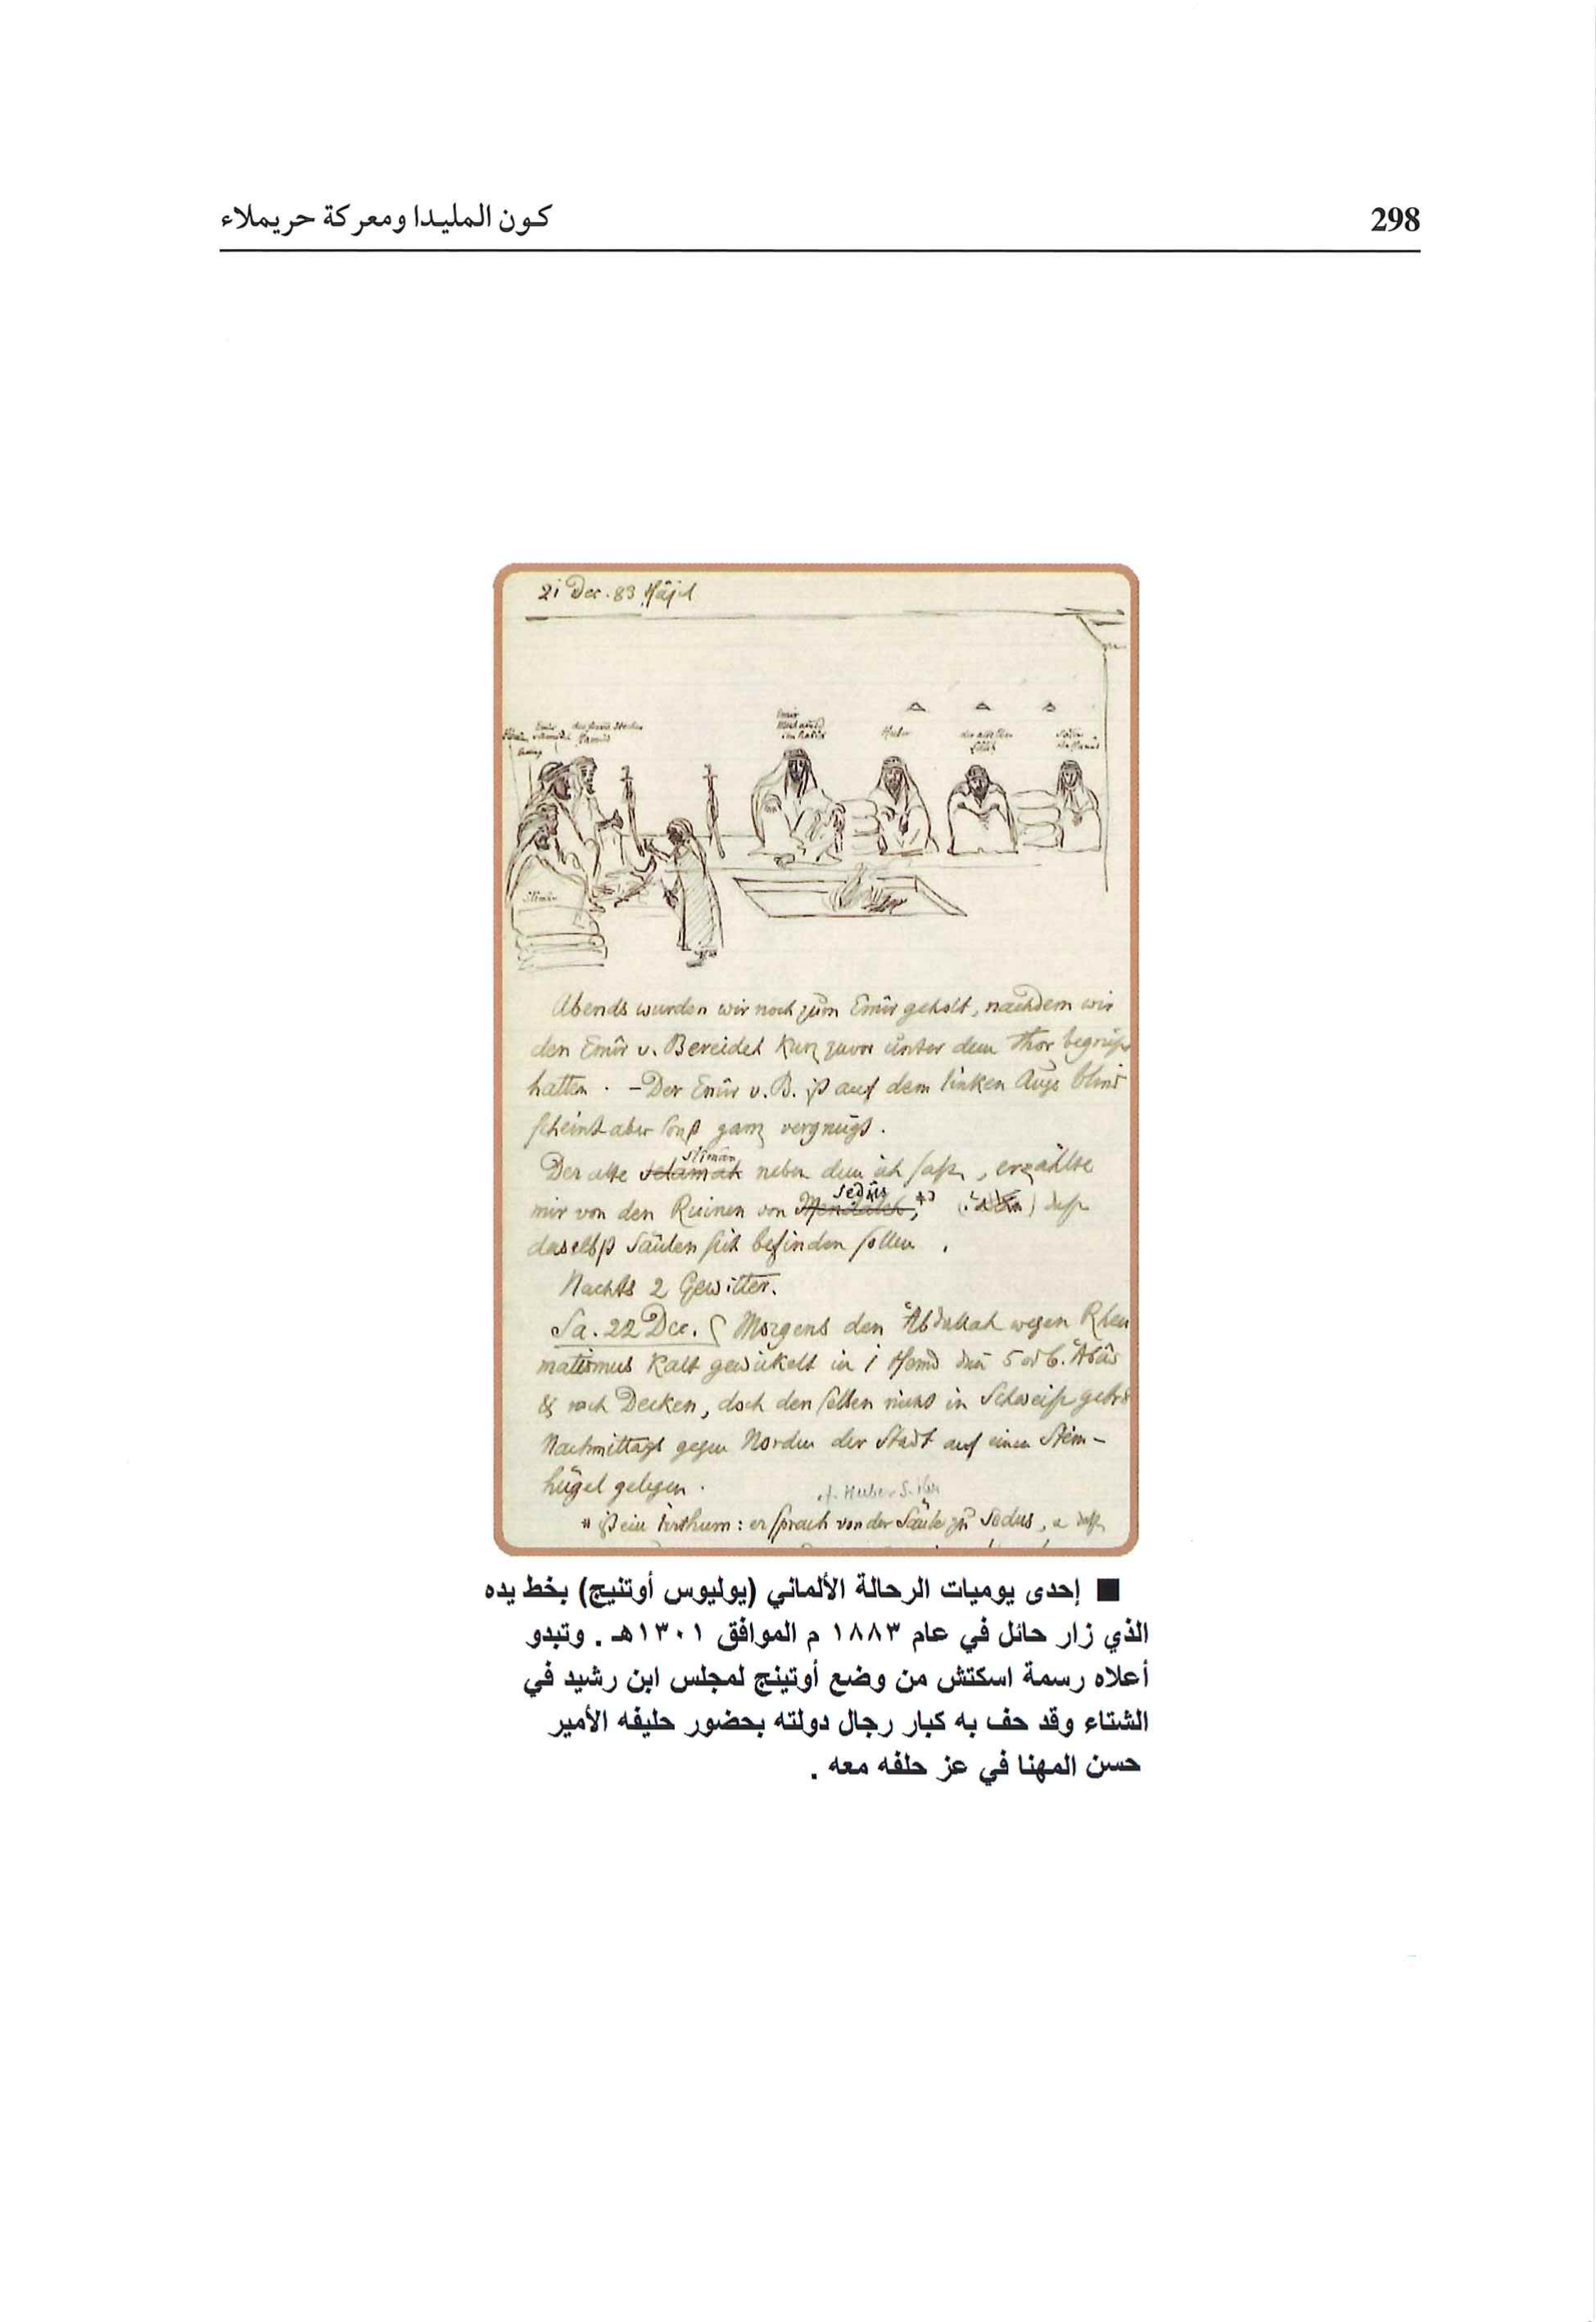 298
كون المليدا ومعركة حريملاء
21 Dec. 83 Hâjel
Emir
Huber
Slimân
Abends wurden wir noch zum Emir geholt, nachdem wir
den Emîr v. Bereidet kurz zuvor unter dem Thor begrüß
hatten. – Der Emîr v. B. ist auf dem linken Auge blind
scheint aber sonst ganz vergnügt.
Der alte Selamah Slimân neben dem ich saß, erzählte
mir von den Ruinen von Sedûs *) daß
daselbst Säulen sich befinden sollen.
Nachts 2 Gewitter.
Sa. 22 Dec. Morgens den ʿAbdullah wegen Rheu
matismus kalt gewickelt in 1 Hemd 5 od 6. ʿAbâs
& noch Decken, doch denselben nicht in Schweiß gebr
Nachmittags gegen Norden der Stadt auf einen Stein-
hügel gelegen.
cf. Huber S.
* ist ein Irrthum: er sprach von der Säule zu Sedus, daß
■ إحدى يوميات الرحالة الألماني (يوليوس أوتنيج) بخط يده
الذي زار حائل في عام ١٨٨٣ م الموافق ١٣٠١هـ . وتبدو
أعلاه رسمة اسكتش من وضع أوتينج لمجلس ابن رشيد في
الشتاء وقد حف به كبار رجال دولته بحضور حليفه الأمير
حسن المهنا في عز حلفه معه .